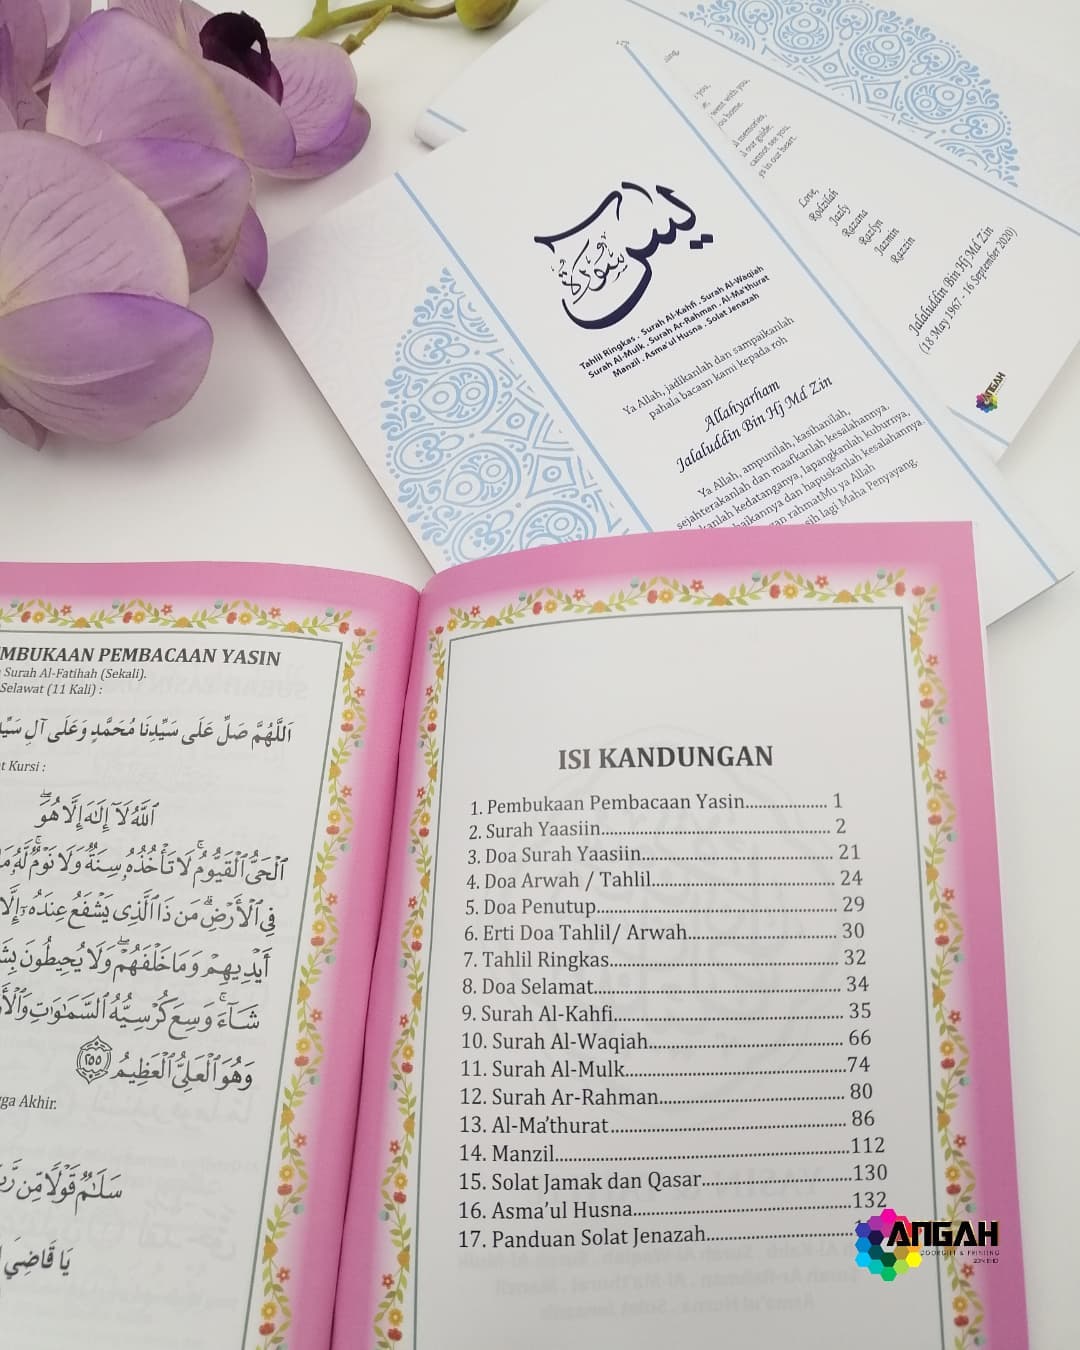 you,
went with you,
you home.
memories,
our guide,
cannot see you,
in our heart.
Love,
Rodzilah
Jazfy
Razana
Razfyn
Jazmin
Razzin
Jalaluddin Bin Hj Md Zin
(18 May 1967 - 16 September 2020)
ANGAH
يس
سورة
Tahlil Ringkas . Surah Al-Kahfi . Surah Al-Waqiah
Surah Al-Mulk . Surah Ar-Rahman . Al-Ma'thurat
Manzil . Asma'ul Husna . Solat Jenazah
Ya Allah, jadikanlah dan sampaikanlah
pahala bacaan kami kepada roh
Allahyarham
Jalaluddin Bin Hj Md Zin
Ya Allah, ampunilah, kasihanilah,
sejahterakanlah dan maafkanlah kesalahannya.
kedatanganya, lapangkanlah kuburnya,
dan hapuskanlah kesalahannya.
rahmatMu ya Allah
lagi Maha Penyayang.
PEMBACAAN YASIN
Surah Al-Fatihah (Sekali).
Selawat (11 Kali) :
اَللَّهُمَّ صَلِّ عَلَى سَيِّدِنَا مُحَمَّدٍ وَعَلَى آلِ
Kursi :
ٱللَّهُ لَآ إِلَٰهَ إِلَّا هُوَ
ٱلْحَيُّ ٱلْقَيُّومُ ۚ لَا تَأْخُذُهُۥ سِنَةٌ وَلَا نَوْمٌ ۚ لَّهُۥ
فِى ٱلْأَرْضِ ۗ مَن ذَا ٱلَّذِى يَشْفَعُ عِندَهُۥٓ إِلَّا
أَيْدِيهِمْ وَمَا خَلْفَهُمْ ۖ وَلَا يُحِيطُونَ
شَآءَ ۚ وَسِعَ كُرْسِيُّهُ ٱلسَّمَٰوَٰتِ
وَهُوَ ٱلْعَلِىُّ ٱلْعَظِيمُ ٢٥٥
Akhir.
سَلَٰمٌ قَوْلًا مِّن
يَا قَاضِيَ
ISI KANDUNGAN
1. Pembukaan Pembacaan Yasin................... 1
2. Surah Yaasiin................... 2
3. Doa Surah Yaasiin................... 21
4. Doa Arwah / Tahlil................... 24
5. Doa Penutup................... 29
6. Erti Doa Tahlil/ Arwah................... 30
7. Tahlil Ringkas................... 32
8. Doa Selamat................... 34
9. Surah Al-Kahfi................... 35
10. Surah Al-Waqiah................... 66
11. Surah Al-Mulk...................74
12. Surah Ar-Rahman................... 80
13. Al-Ma'thurat................... 86
14. Manzil...................112
15. Solat Jamak dan Qasar...................130
16. Asma'ul Husna...................132
17. Panduan Solat Jenazah...................
ANGAH
DOORGIFT & PRINTING
SDN BHD